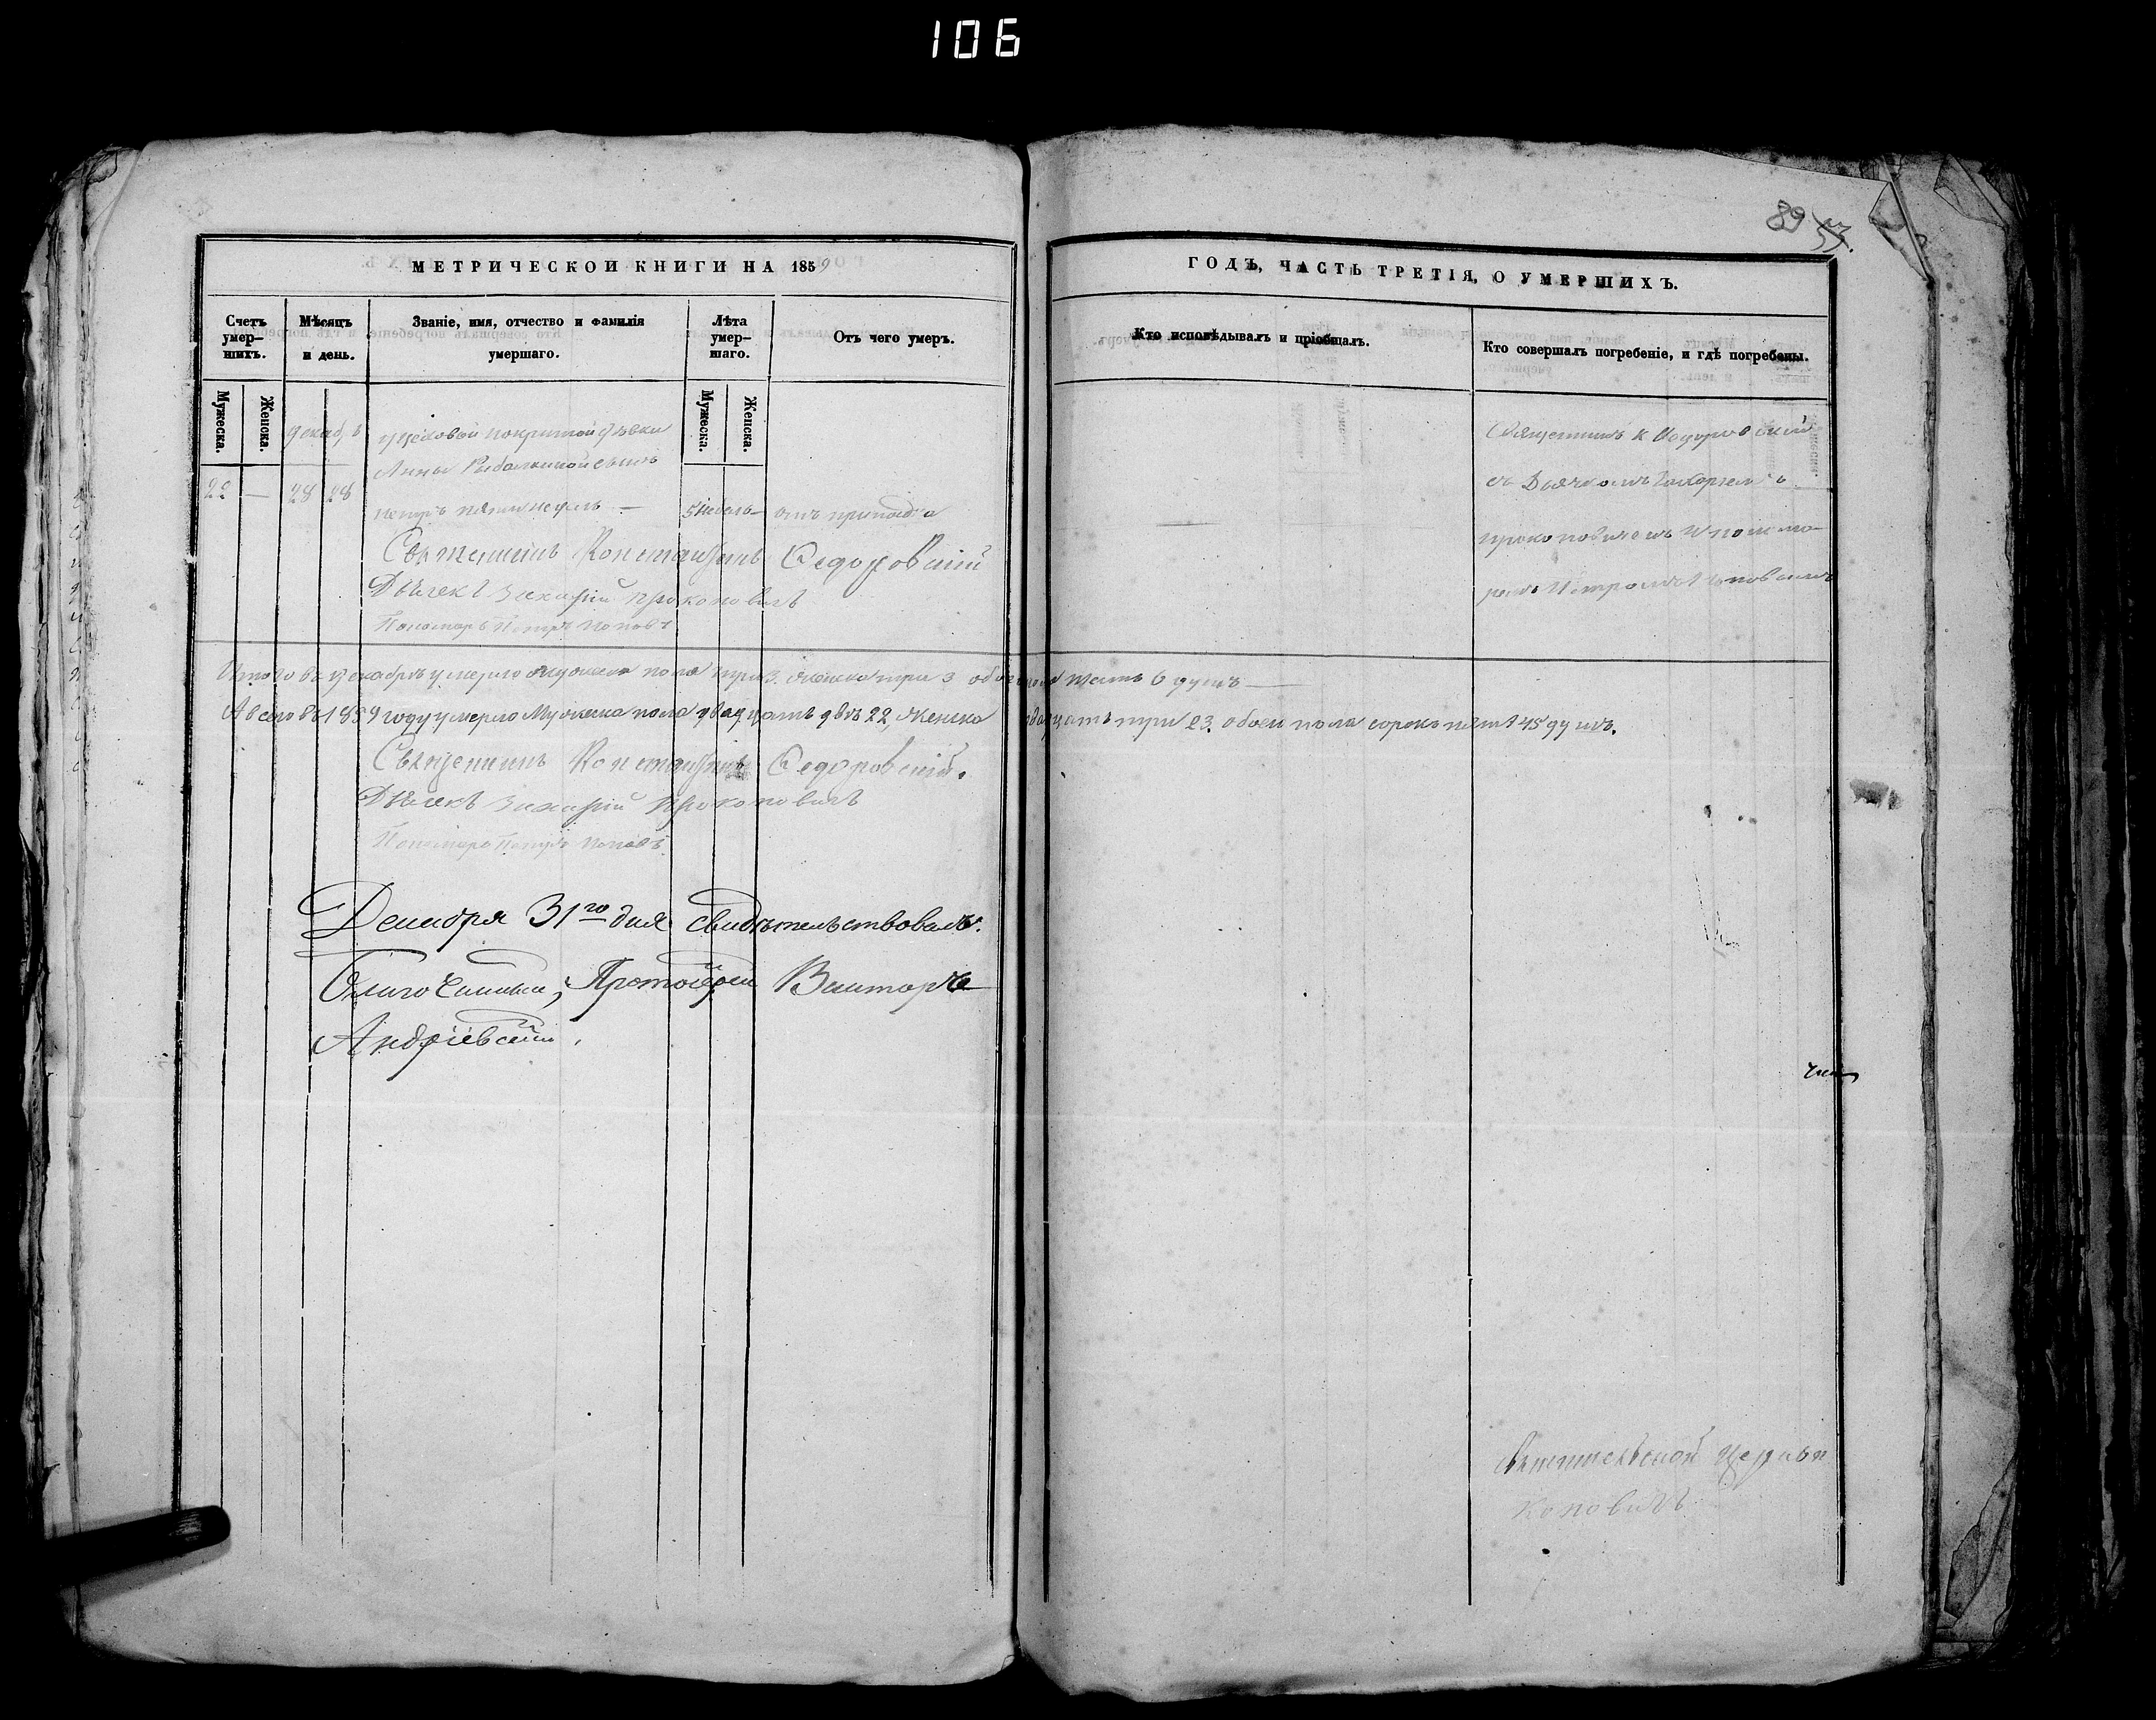 106
89 53.
МЕТРИЧЕСКОЙ КНИГИ НА 1859
ГОДЪ, ЧАСТЬ ТРЕТІЯ, О УМЕРШИХЪ.
Счетъ умер-шихъ.
Мѣсяцъ и день.
Званіе, имя, отчество и фамилія умершаго.
Лѣта умер-шаго.
Отъ чего умеръ.
Кто исповѣдывалъ и пріобщалъ.
Кто совершалъ погребеніе, и гдѣ погребены.
Мужеска.
Женска.
Мужеска.
Женска.
декабрь
покрытой дѣвки
Анны Рыбалкиной сынъ
22 — 28 28
петръ пяти недѣль — 5 недѣль — отъ припадка
Священникъ К Федоровскій
съ Дьячкомъ Захаріемъ
прокоповичемъ и поно-
ремъ Петромъ Поповымъ
Священникъ Константинъ Федоровскій
Дьячекъ Захарій прокоповичъ
Пономарь Петръ поповъ
Итого въ декабрѣ умерло мужеска пола три 3. женска три 3 обоего пола шесть 6 душъ —
А всего въ 1859 году умерло Мужеска пола двадцать двѣ 22, женска двадцать три 23. обоего пола сорокъ пять 45 душъ.
Священникъ Константинъ Федоровскій.
Дьячекъ Захарій прокоповичъ
Пономарь Петръ поповъ
Декабря 31го дня свидѣтельствовалъ.
Благочинный, Протоіерей Викторъ
Андріевскій.
церкви
коповичъ